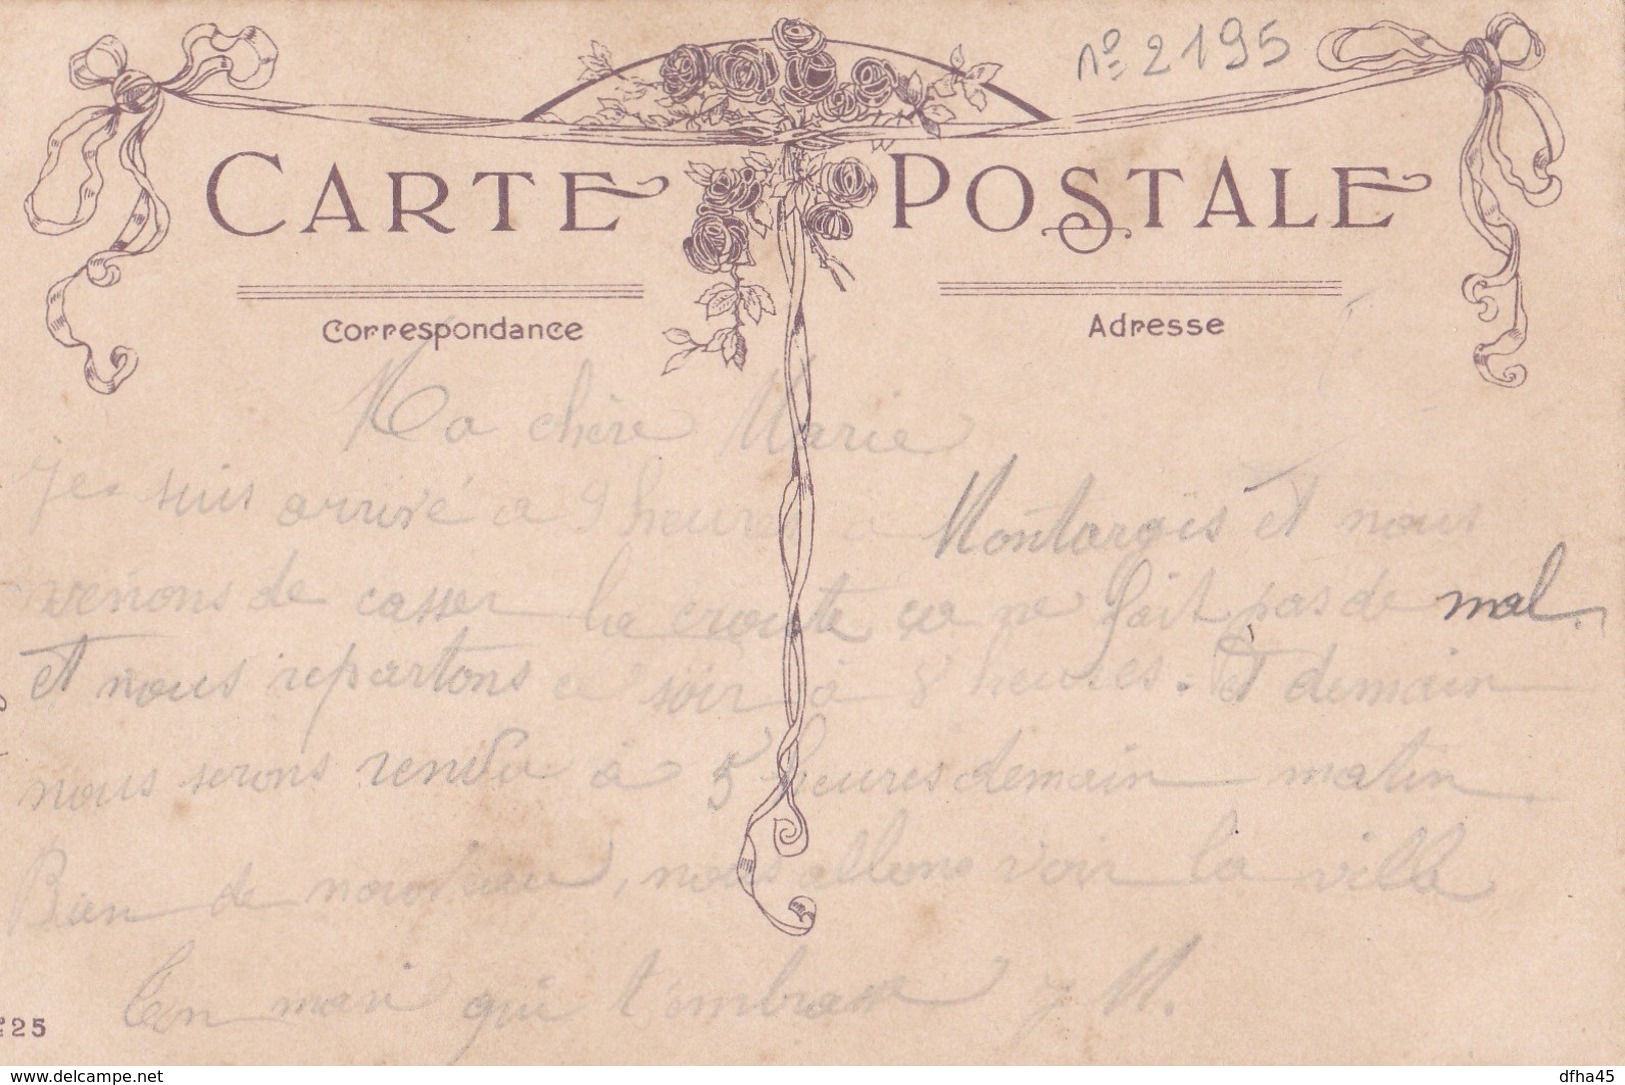 n° 2195
CARTE POSTALE
Correspondance
Adresse
Ma chère Marie
Je suis arrivé a 9 heures a Montargis et nous
venons de casser la croute ca ne fait pas de mal.
et nous repartons ce soir à 8 heures. Et demain
nous serons rendu à 5 heures demain matin
Bien de nouveau, nous allons voir la ville
Ton mari qui t'embrasse J M.
25
www.delcampe.net
dfha45